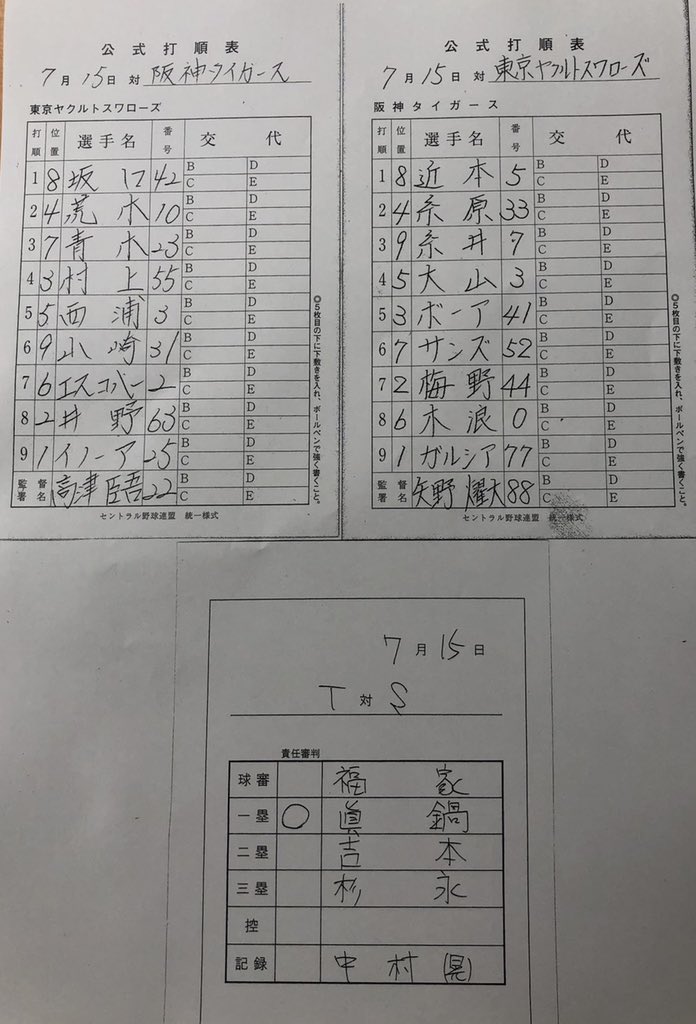 公式打順表
7月15日 対 阪神タイガース
東京ヤクルトスワローズ
打順 位置 選手名 番号 交代
1 8 坂口 42 B D C E
2 4 荒木 10 B D C E
3 7 青木 23 B D C E
4 3 村上 55 B D C E
5 5 西浦 3 B D C E
6 9 山崎 31 B D C E
7 6 エスコバー 2 B D C E
8 2 井野 63 B D C E
9 1 イノーア 25 B D C E
監督署名 高津臣吾 22 B D C E
◎5枚目の下に下敷きを入れ、ボールペンで強く書くこと。
セントラル野球連盟 統一様式
公式打順表
7月15日 対 東京ヤクルトスワローズ
阪神タイガース
打順 位置 選手名 番号 交代
1 8 近本 5 B D C E
2 4 糸原 33 B D C E
3 9 糸井 7 B D C E
4 5 大山 3 B D C E
5 3 ボーア 41 B D C E
6 7 サンズ 52 B D C E
7 2 梅野 44 B D C E
8 6 木浪 0 B D C E
9 1 ガルシア 77 B D C E
監督署名 矢野燿大 88 B D C E
◎5枚目の下に下敷きを入れ、ボールペンで強く書くこと。
セントラル野球連盟 統一様式
7月15日
T 対 S
責任審判
球審 福家
一塁 ○ 眞鍋
二塁 吉本
三塁 杉永
控
記録 中村(晃)